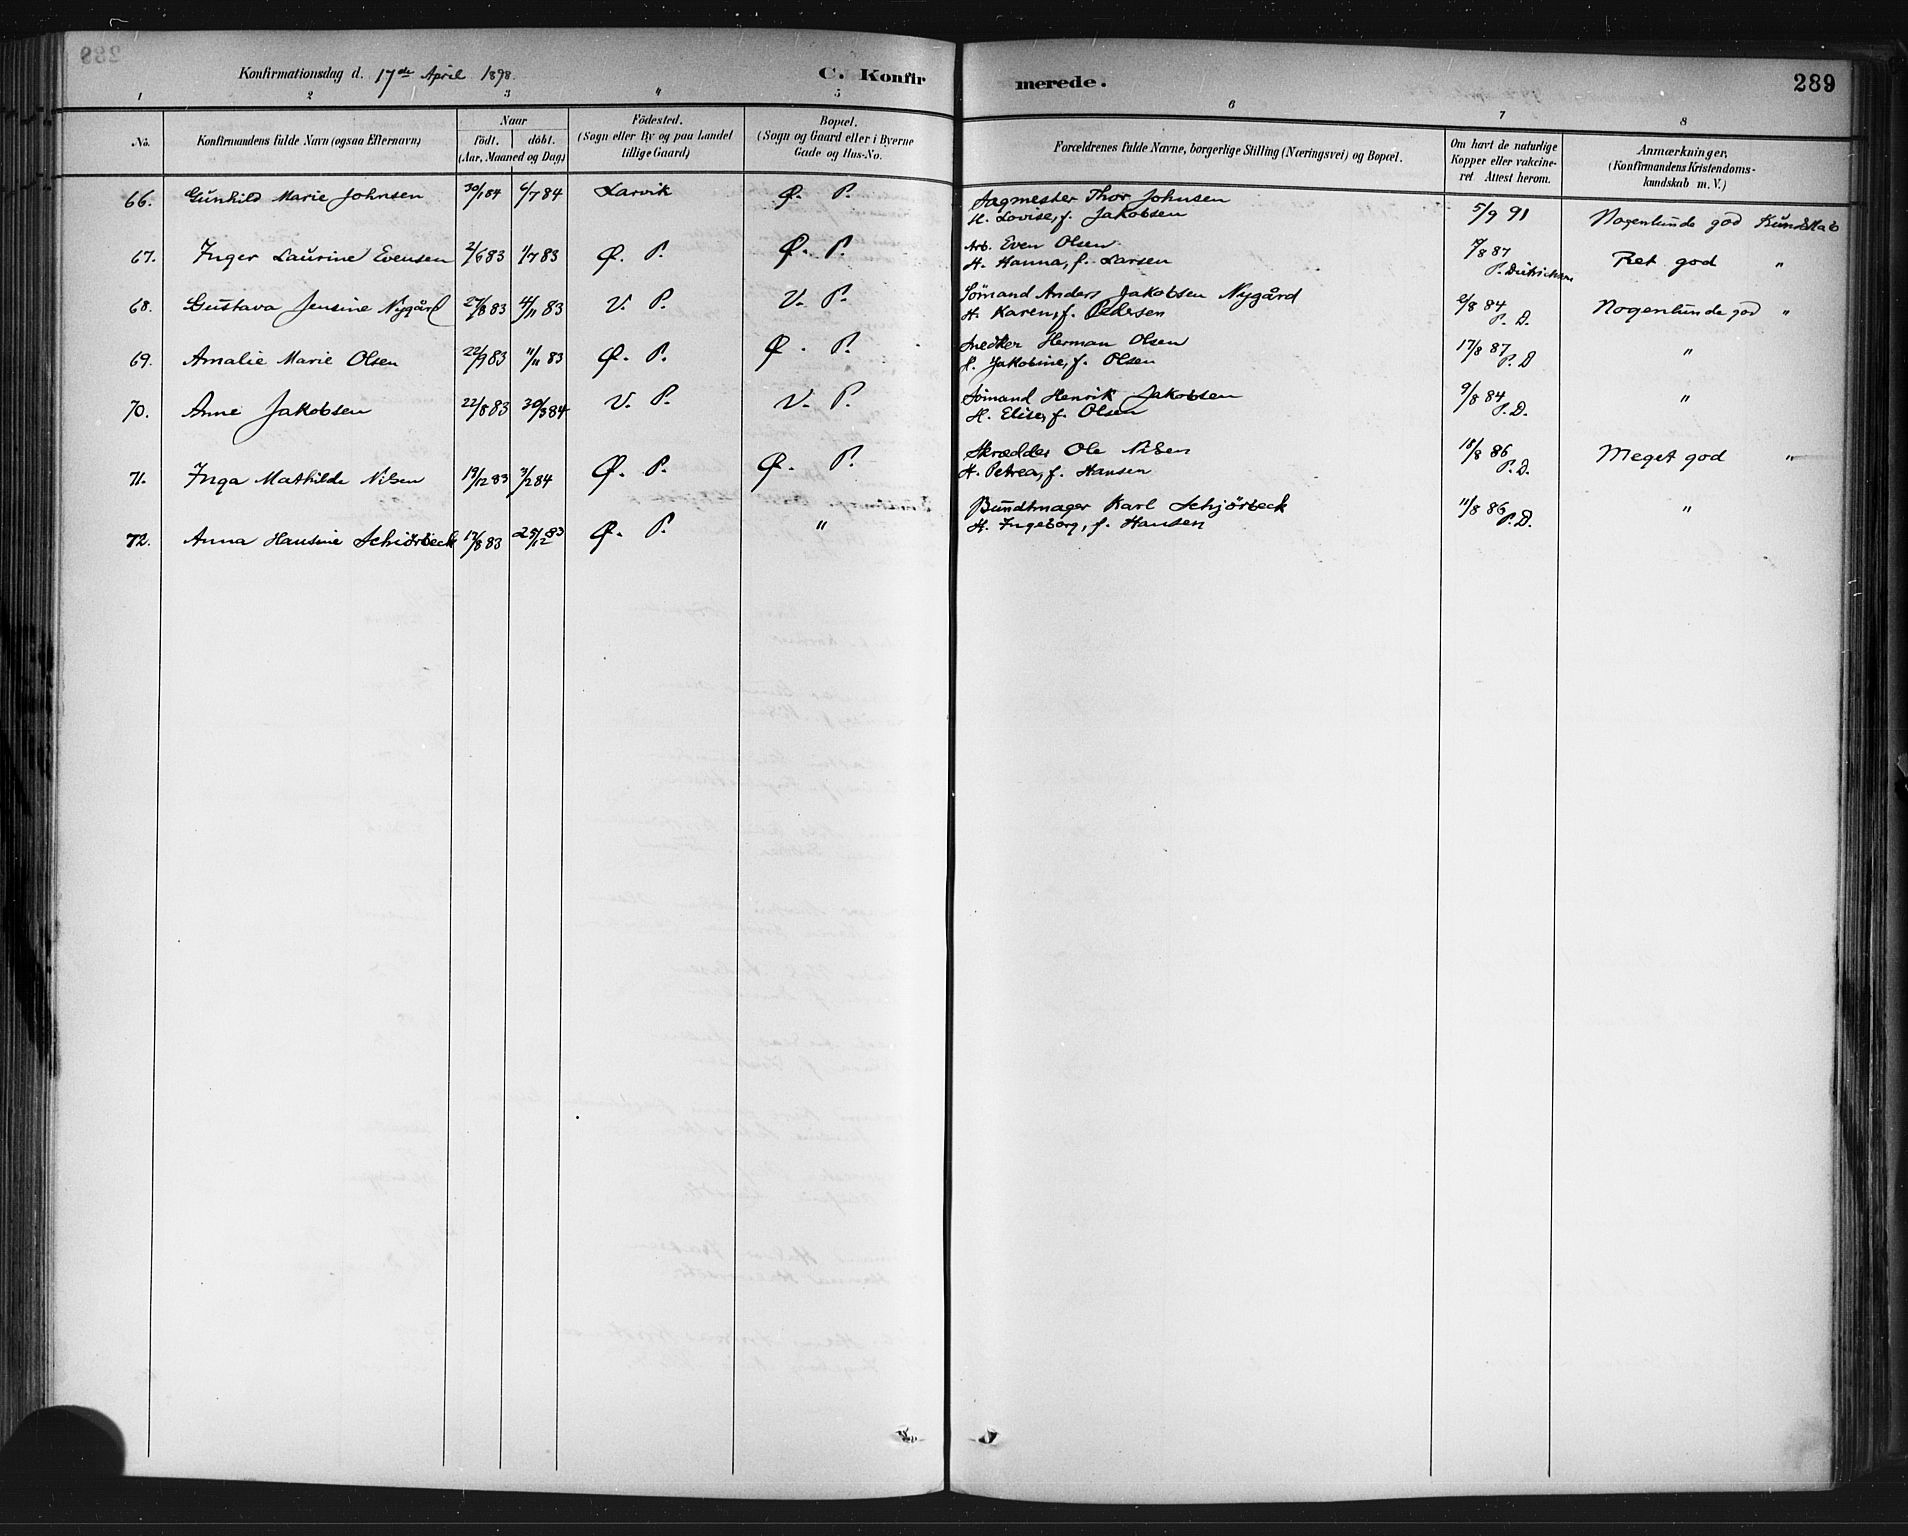 Konfirmationsdag d. 17de April 1898. C. Konfirmerede. 289
1 2 3 4 5 6 7 8
No. Konfirmandens fulde Navn (ogsaa Efternavn) Naar født. døbt. (Aar, Maaned og Dag) Fødested. (Sogn eller By og paa Landet tillige Gaard) Bopæl. (Sogn og Gaard eller i Byerne Gade og Hus-No. Forældrenes fulde Navne, borgerlige Stilling (Næringsvei) og Bopæl. Om havt de naturlige Kopper eller vakcineret Attest herom. Anmærkninger, (Konfirmandens Kristendomskundskab m. V.)
66. Gunhild Marie Johnsen 30/1 84 6/7 84 Larvik Ø. P. Sagmester Thor Johnsen
H. Lovise, f. Jakobsen 5/9 91 Nogenlunde god Kundskab
67. Inger Laurine Evensen 2/6 83 1/7 83 Ø. P. Ø. P. Arb. Even Olsen
H. Hanna, f. Larsen /8 87 P. Dietrichsen Ret god "
68. Gustava Jensine Nygård 27/8 83 4/11 83 V. P. V. P. Sömand Anders Jakobsen Nygård
H. Karen, f. Pedersen /8 84 P. D. Nogenlunde god "
69. Amalie Marie Olsen 22/9 83 11/11 83 Ø. P. Ø. P. Snedker Herman Olsen
H. Jakobine, f. Olsen 17/8 87 P. D "
70. Anne Jakobsen 22/8 83 30/3 84 V. P. V. P. Sömand Henrik Jakobsen
H. Elise, f. Olsen 9/8 84 P. D. "
71. Inga Mathilde Nilsen 19/12 83 3/2 84 Ø. P. Ø. P. Skrædder Ole Nilsen
H. Petrea, f. Hansen 18/8 86 P. D. Meget god "
72. Anna Hansine Schiörbeck 17/8 83 26/12 83 Ø. P. " Bundtmager Karl Schjörbeck
H. Ingeborg, f. Hansen 11/8 86 P. D. "